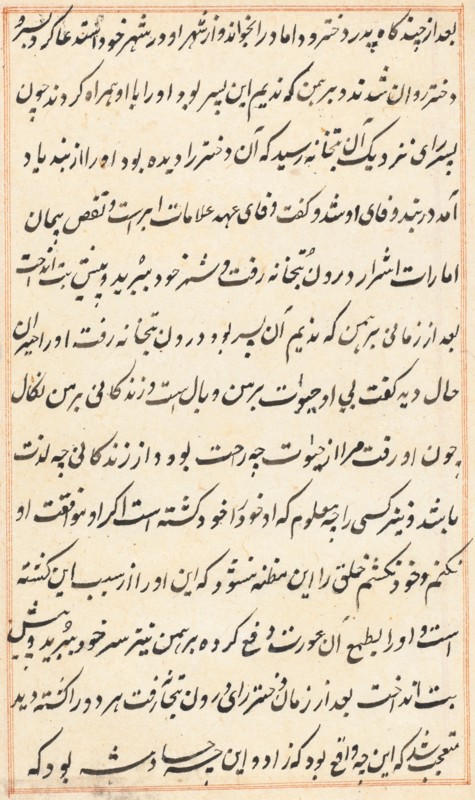 بعد از چند گاه پدر دختر و داماد را بخواند و از شهر او در شهر خود داشتند عاکر د پسر و
دختر روان شدند و برهمن که ندیم این پسر بود او را با او همراه کردند چون
پسر رای نزدیک آن بتخانه رسید که آن دختر را دیده بود او را از بند یاد
آمد در بند وفای او شد و گفت وفای عهد علامات ابرار است و نقص پیمان
امارات اشرار درون بتخانه رفت و سر خود ببرید و پیش بت انداخت
بعد از زمانی برهمن که ندیم آن پسر بود درون بتخانه رفت او را بدان
حال دید گفت بی او حیوات بر من وبال است و زندگانی بر من نکال
چون او رفت مرا از حیوات چه راحت بود و از زندگانی چه لذت
باشد و نیز کسی را چه معلوم که او خود را خود کشته است اگر او موافقت او
نکنم و خود نکشم خلق را این مظنه شود که این او را از سبب این کشته
است و او را بطمع آن عورت دفع کرده برهمن نیز سر خود ببرید و پیش
بت انداخت بعد از زمان دختر رای درون بتخانه رفت هر دو را کشته دید
متعجب شد که این چه واقع بود که زاد و این چه حادثه بود که